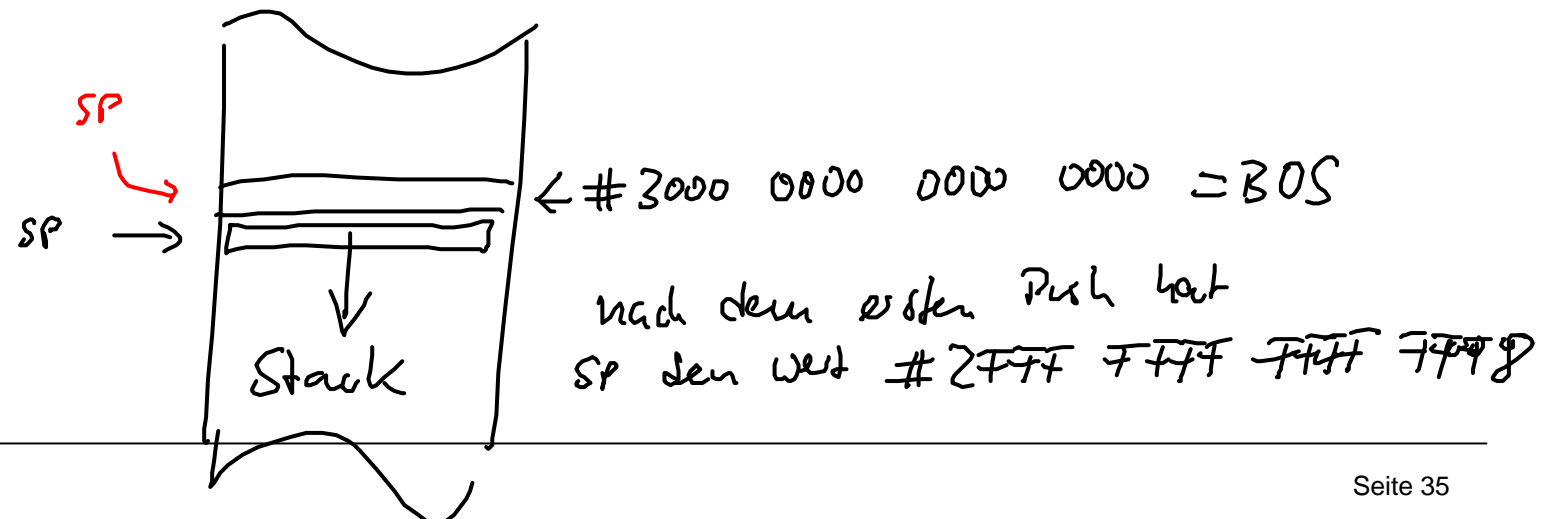 SP
← #3000 0000 0000 0000 = BOS
SP →
nach dem ersten Push hat
Stack
SP den Wert #2FFF FFFF FFFF FFF8
Seite 35